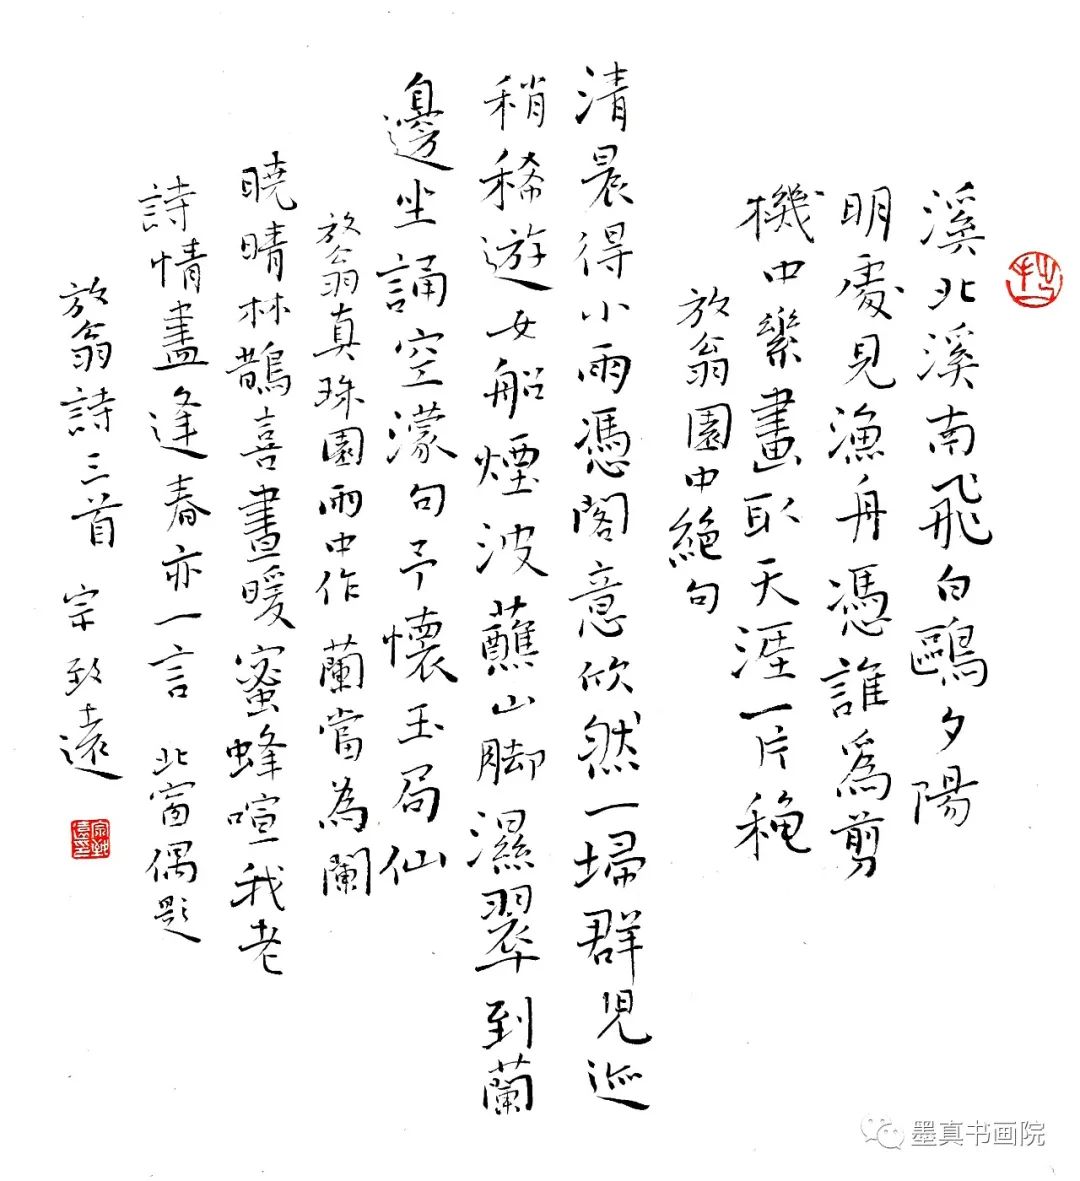 溪北溪南飛白鷗夕陽
明處見漁舟憑誰為剪
機中樂畫取天涯一片穐
放翁園中絕句
清晨得小雨憑閣意欣然一埽群兒迹
稍稀遊女船煙波蘸山脚濕翠到蘭
邊坐誦空濛句予懷玉局仙
放翁真珠園雨中作 蘭當為闌
曉晴林鵲喜晝暖蜜蜂喧我老
詩情盡逢春亦一言 北窗偶題
放翁詩三首 宗致遠
墨真书画院